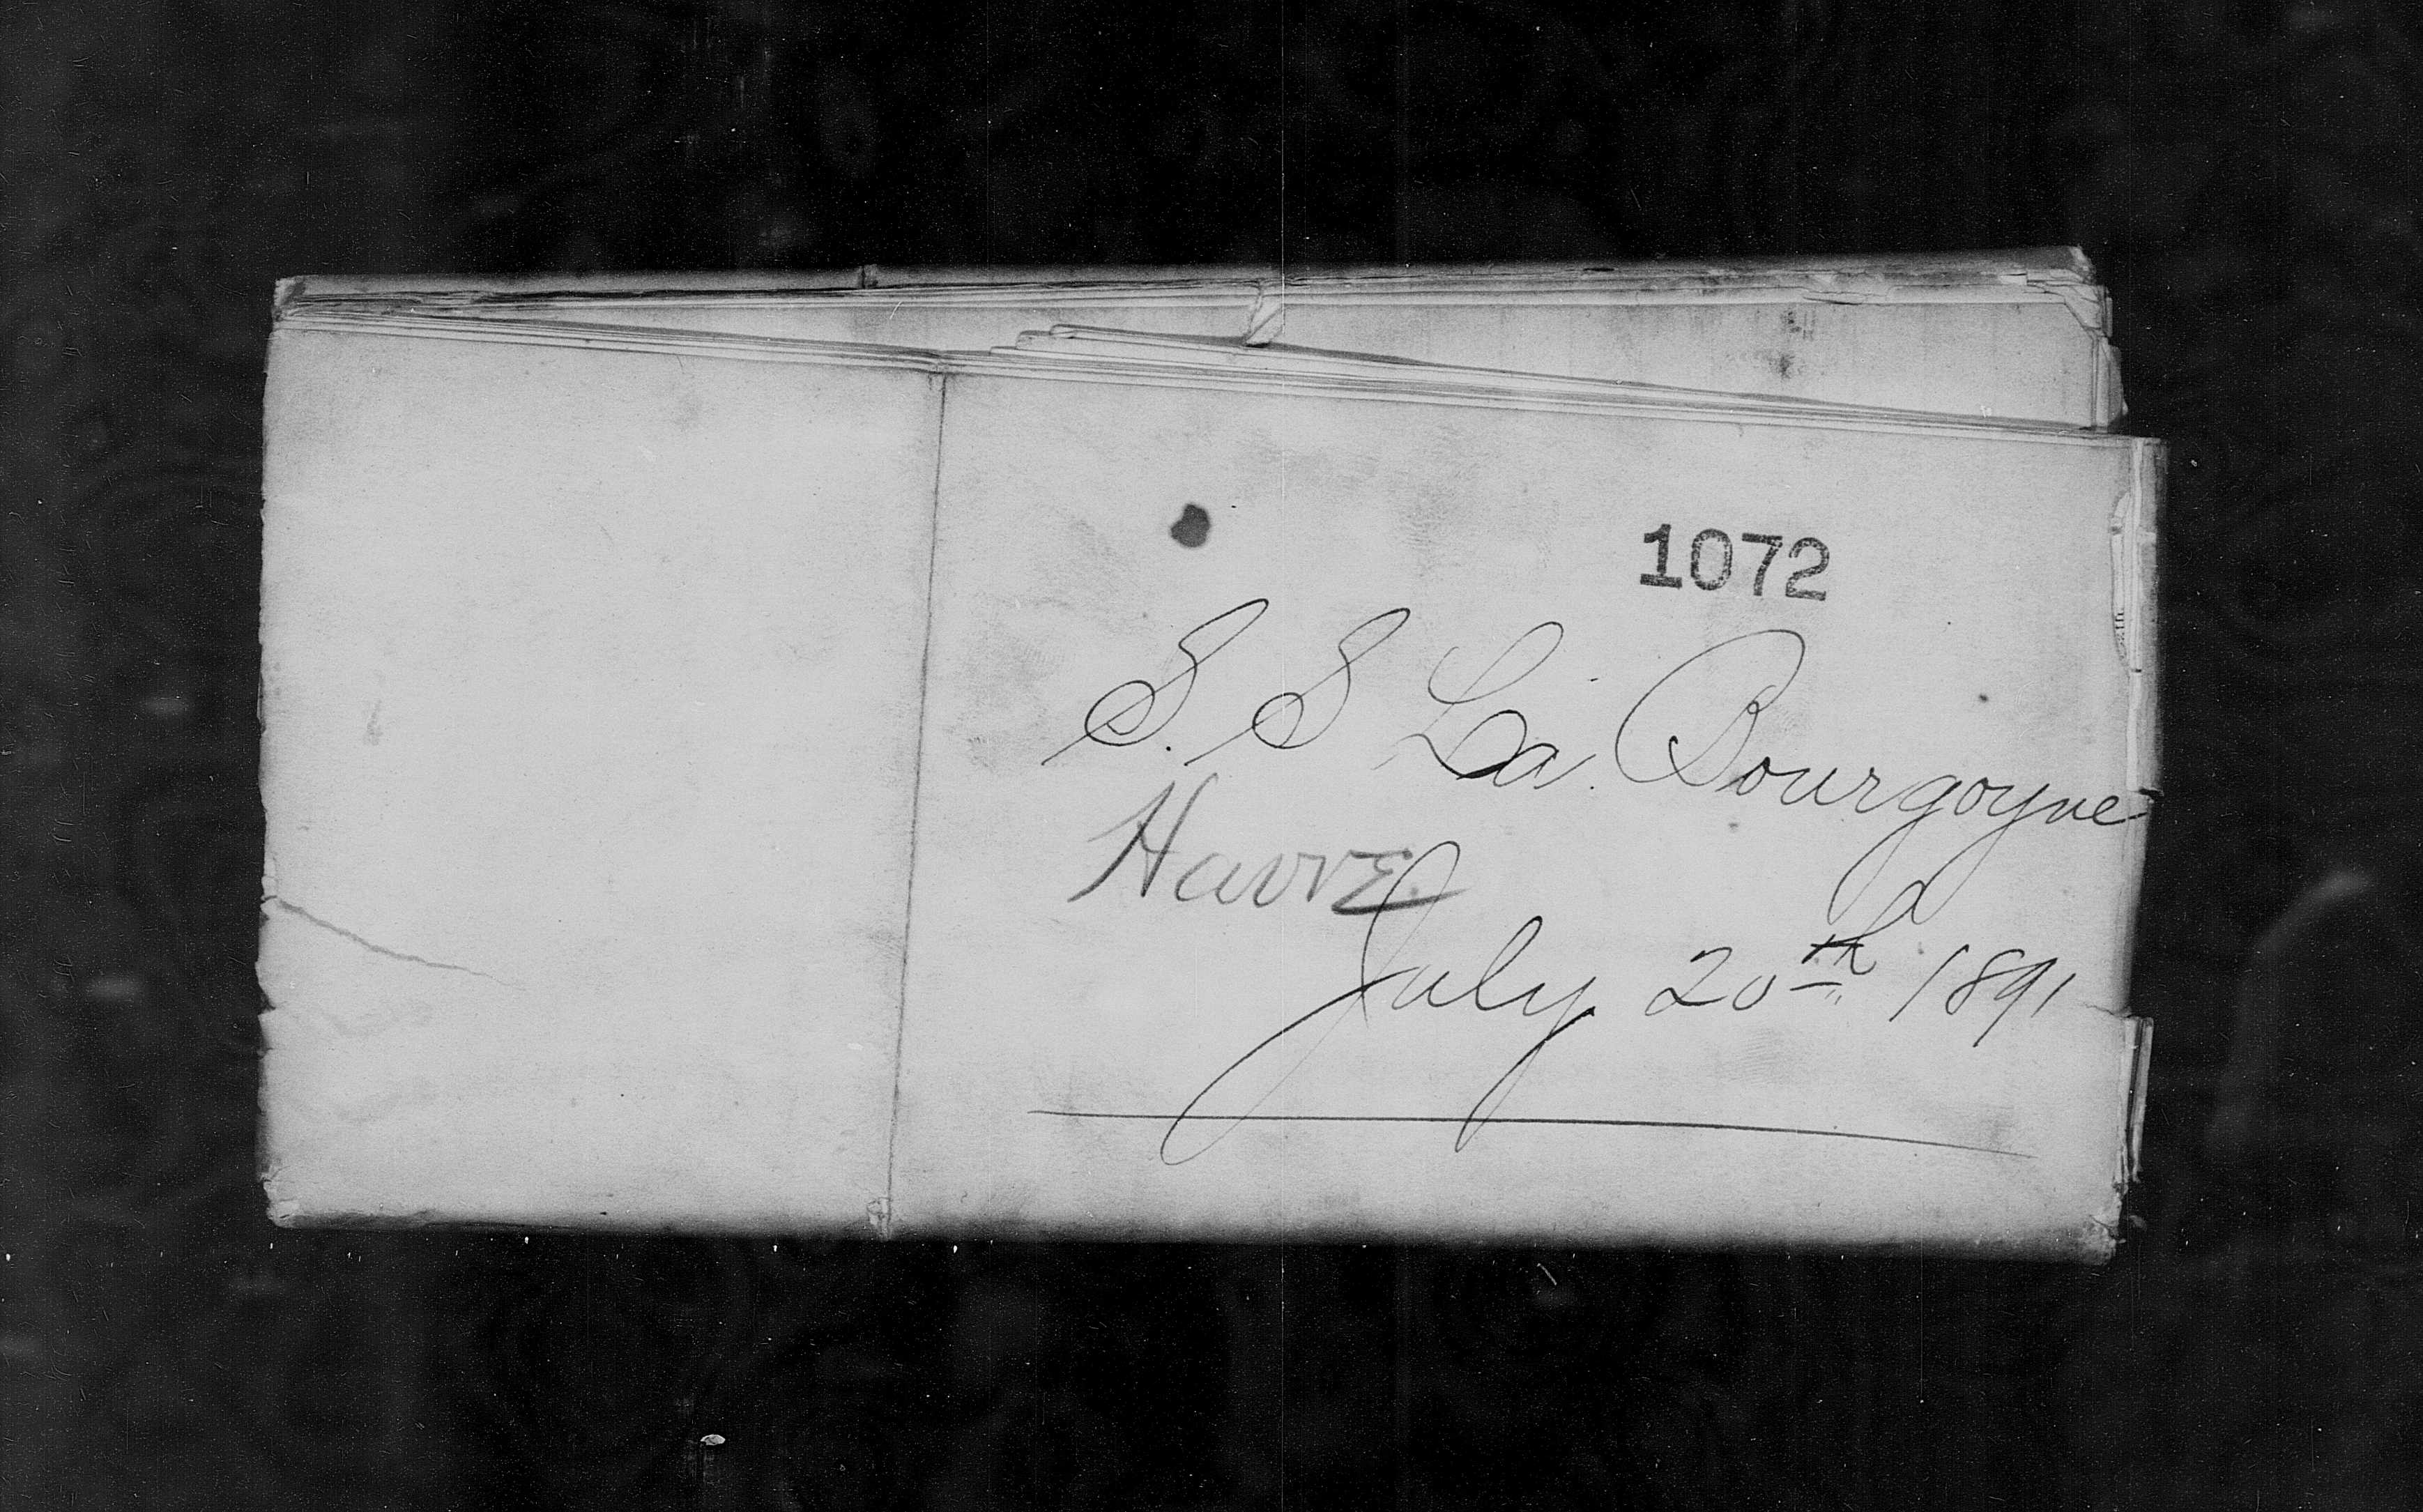 1072
S. S La. Bourgoyne
Havre
July 20th 1891